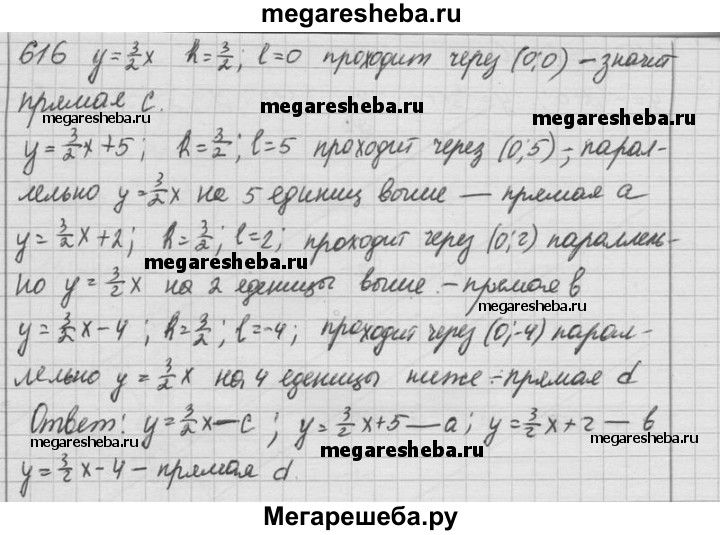 megaresheba.ru
616 y=3/2x k=3/2; l=0 проходит через (0;0) – значит
прямая c.
megaresheba.ru
megaresheba.ru
megaresheba.ru
y=3/2x+5; k=3/2; l=5 проходит через (0;5) – парал-
лельно y=3/2x на 5 единиц выше — прямая a
y=3/2x+2; k=3/2; l=2; проходит через (0;2) параллель-
megaresheba.ru
но y=3/2x на 2 еденицы выше – прямая b
megaresheba.ru
y=3/2x-4; k=3/2; l=-4; проходит через (0;-4) парал-
лельно y=3/2x на 4 еденицы ниже – прямая d
Ответ: y=3/2x – c; y=3/2x+5 — a; y=3/2x+2 — b
megaresheba.ru
megaresheba.ru
y=3/2x-4 – прямая d.
megaresheba.ru
Мегарешеба.ру